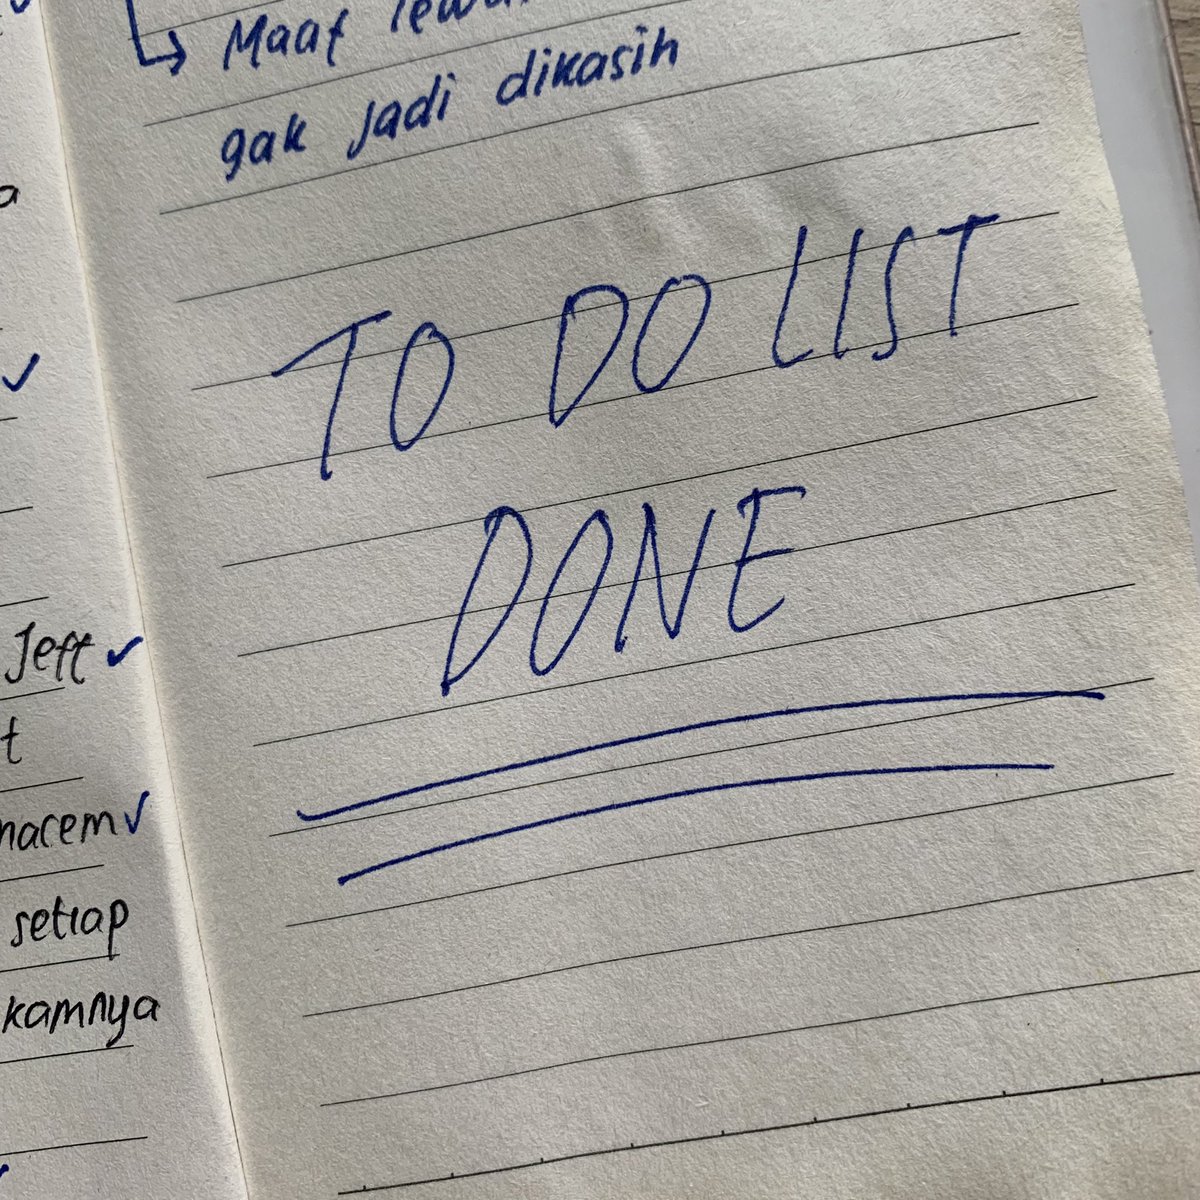 a
Jeff ✓
t
macem ✓
setiap
kamnya
↳ Maaf
gak jadi dikasih
TO DO LIST
DONE